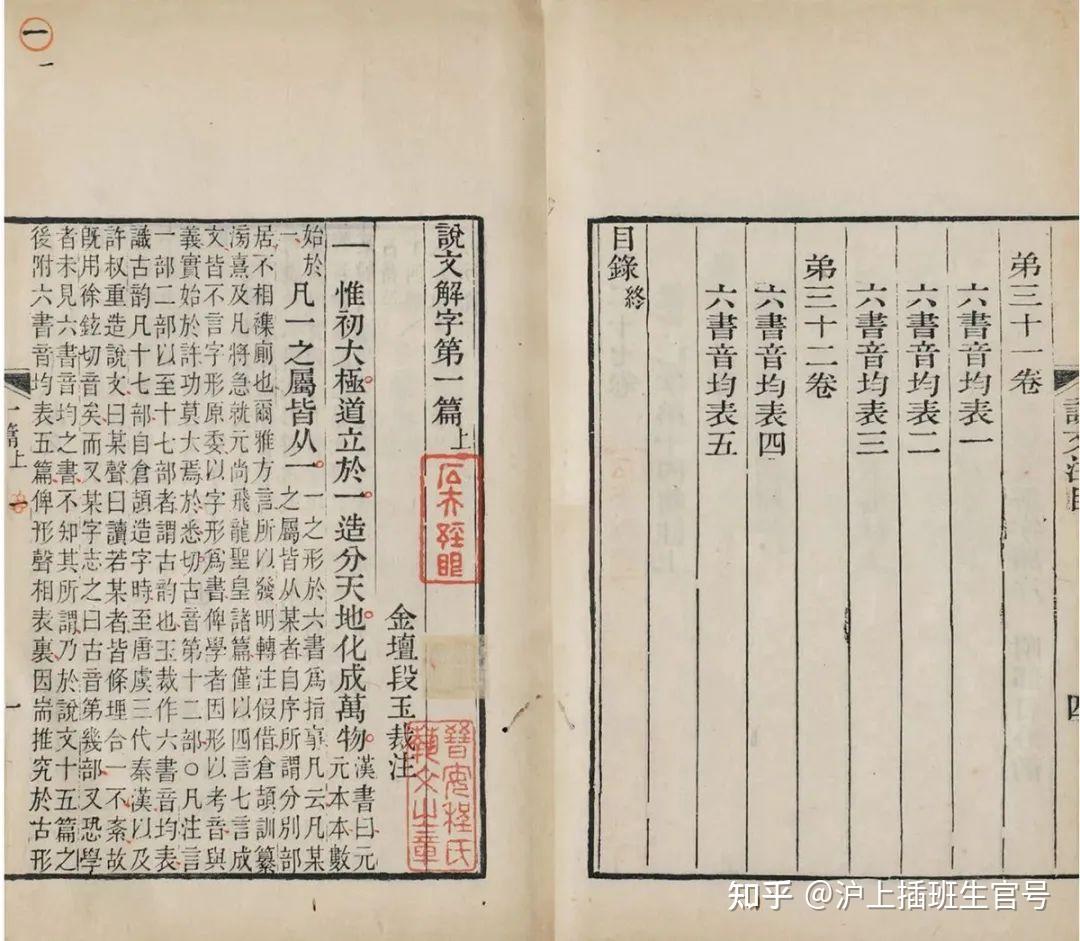 弟三十一卷
六書音均表一
六書音均表二
六書音均表三
弟三十二卷
六書音均表四
六書音均表五
目錄終
四
一
一
說文解字第一篇上
金壇段玉裁注
一惟初大極道立於一造分天地化成萬物漢書曰元元本本數
始於一凡一之屬皆从一一之形於六書爲指事凡云凡某之屬皆从某者自序所謂分別部
居不相襍廁也爾雅方言所以發明轉注假借倉頡訓纂
滂熹及凡將急就元尚飛龍聖皇諸篇僅以四言七言成
文皆不言字形原委以字形爲書俾學者因形以考音與
義實始於許功莫大焉於悉切古音第十二部○凡注言
一部二部以至十七部者謂古韵也玉裁作六書音均表
識古韵凡十七部自倉頡造字時至唐虞三代秦漢以及
許叔重造說文曰某聲曰讀若某者皆條理合一不紊故
旣用徐鉉切音矣而又某字志之曰古音第幾部又恐學
者未見六書音均之書不知其所謂乃於說文十五篇之
後附六書音均表五篇俾形聲相表裏因耑推究於古形
一篇上
一
知乎 @沪上插班生官号